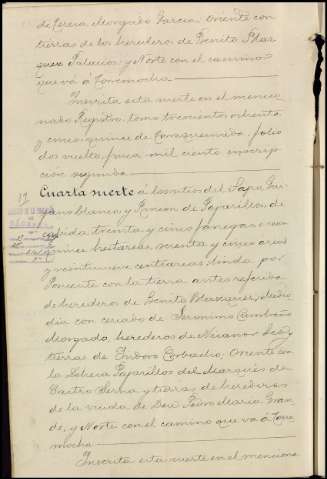 de Teresa Morgado Garcia. Oriente con
tierras de los herederos de Benita Mar
quez Palacios y Norte con el camino
que vá á Torremocha
Inscrita esta suerte en el mencio
nado Registro, tomo trescientos ochenta
y cinco, quince de Torrequemada, folio
dos vuelto, finca mil ciento, inscrip
cion segunda
Cuarta suerte á los sitios del
y Rincon de Paparillos, de
cabida, treinta y cinco fanegas o sean
quince hectareas, setenta y cinco areas
y veintinueve centiareas: linda por
Poniente con la tierra antes referida
de herederos de Benita Marquez, Medio
dia con cercado de Geronimo
Morgado, herederos de
tierras de Oriente con
la Dehesa Paparillos del Marqués de
Castro Serna y tierras de herederos
de la viuda de Don Pedro Maria Gran
de, y Norte con el camino que vá á Torre
mocha
Inscrita esta suerte en el menciona